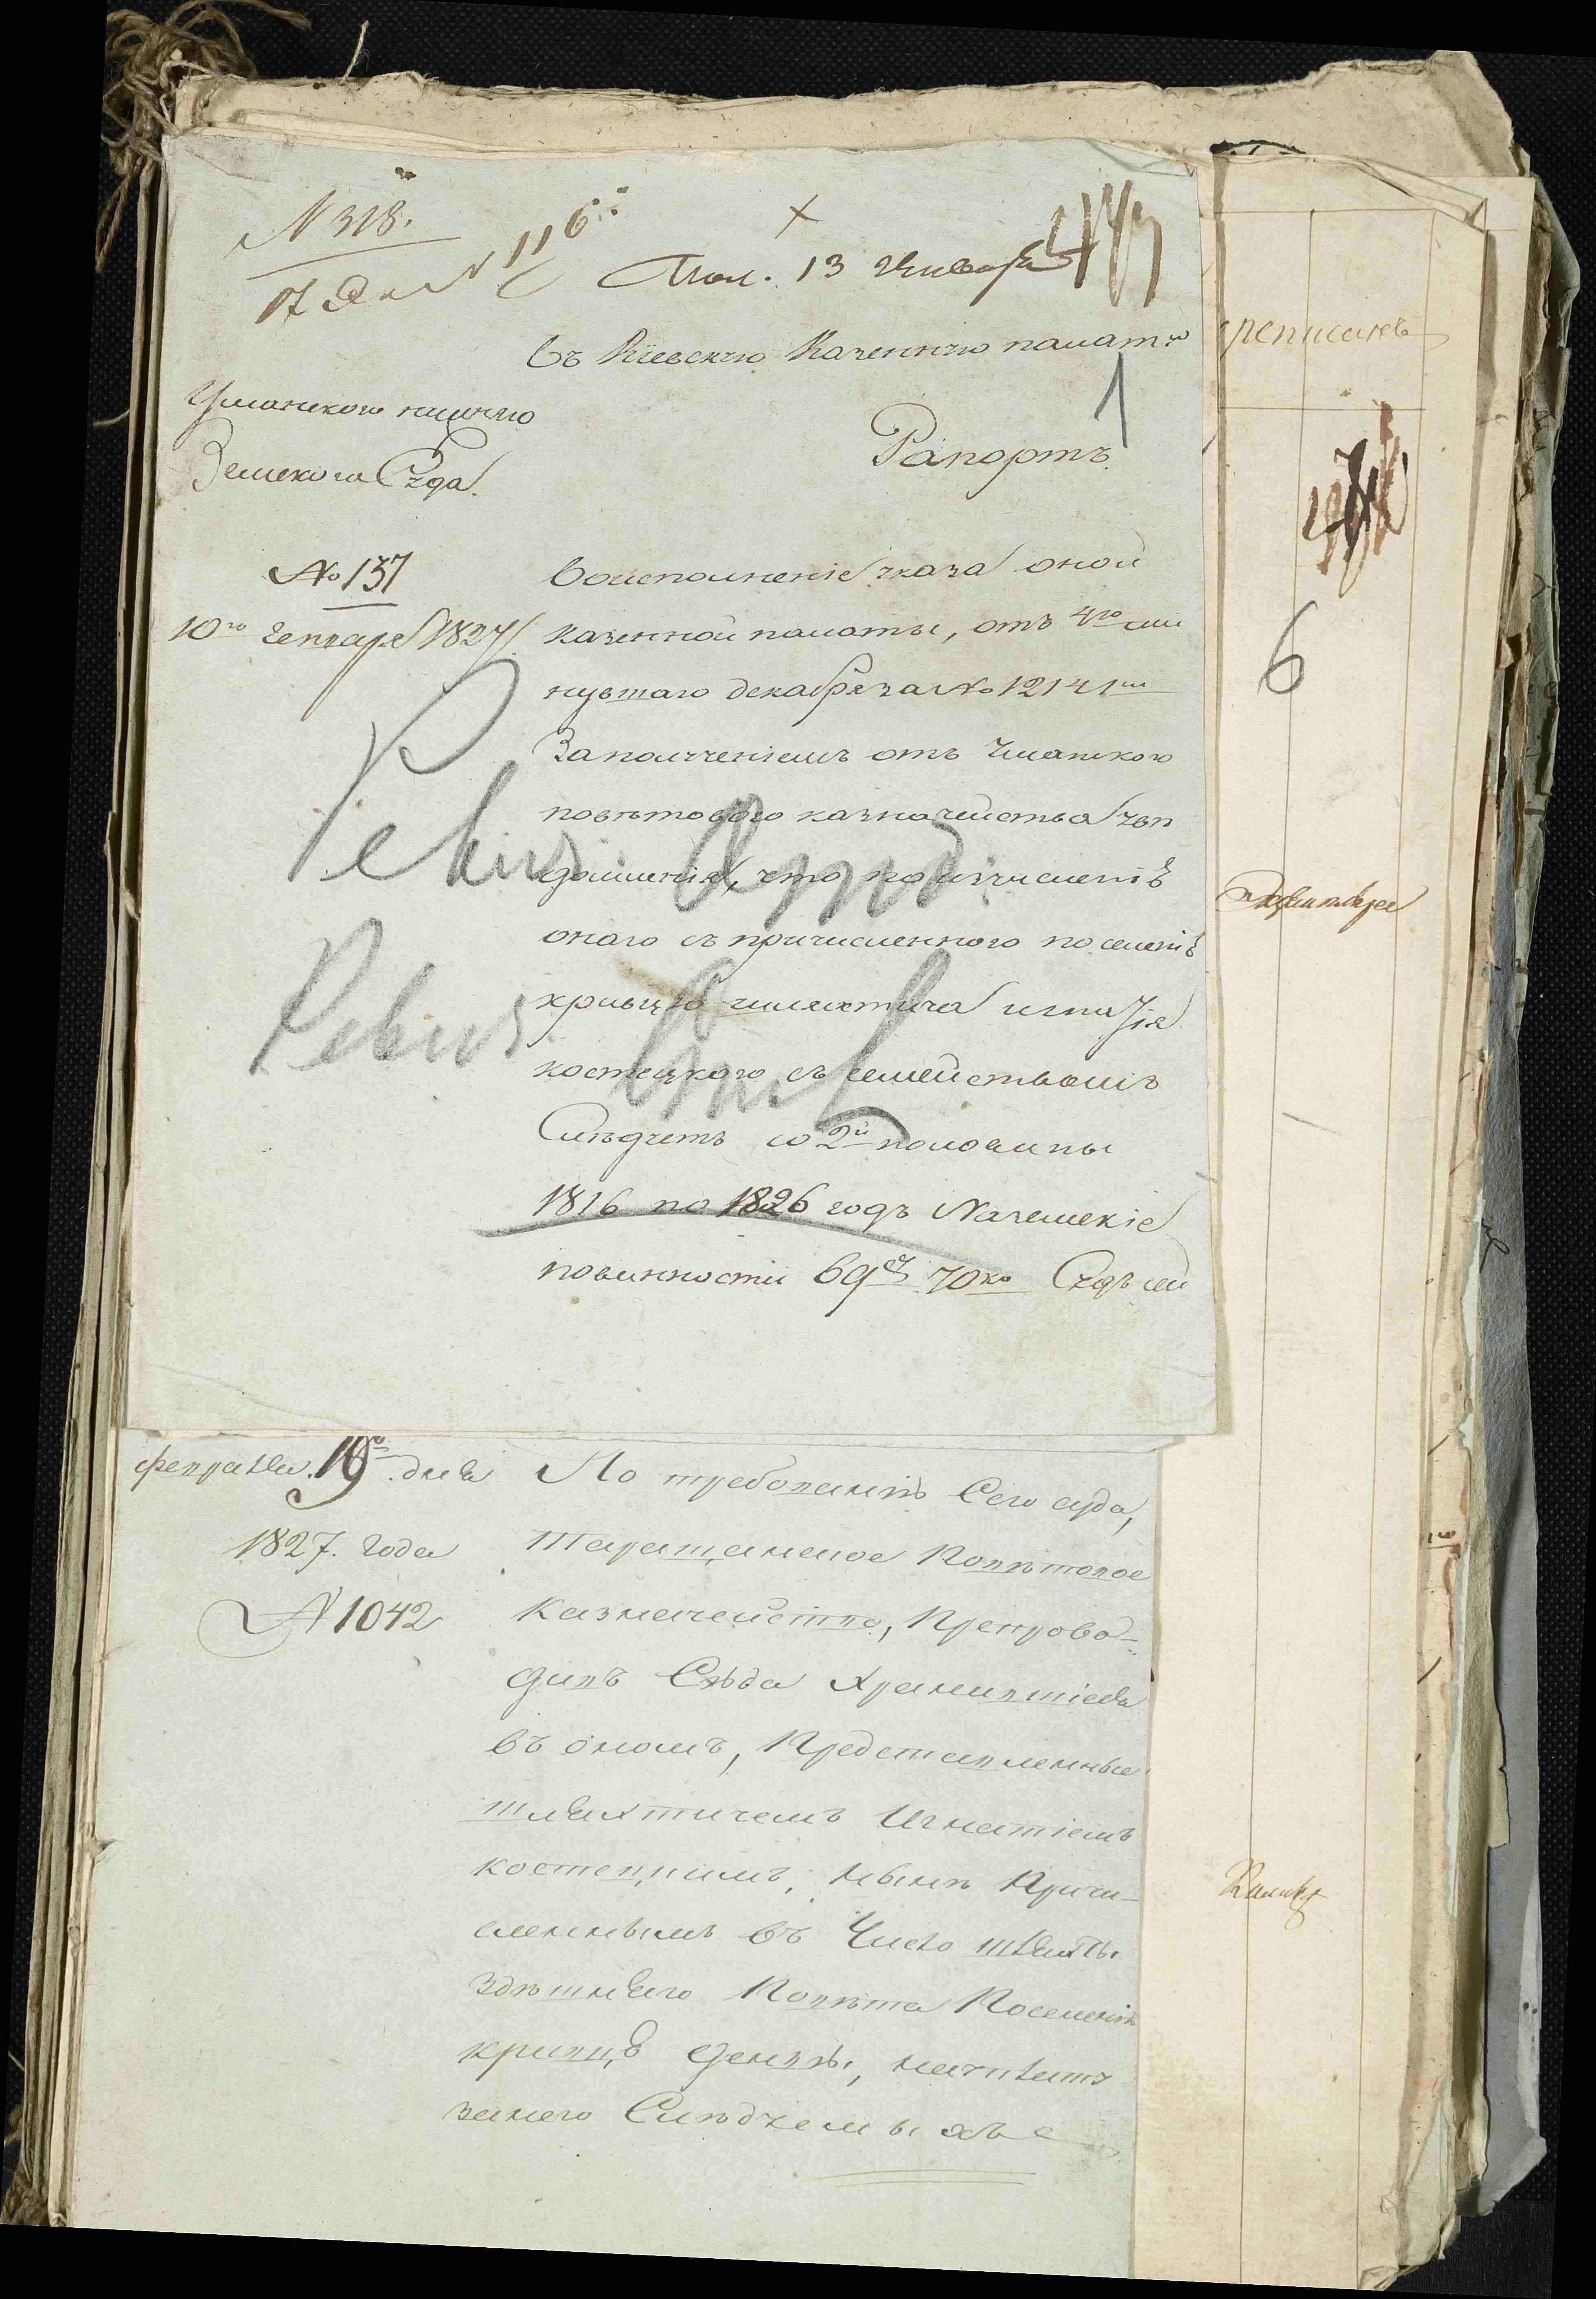 N 318.
17 Янв
N 116
Пол. 13 Января
Въ Кіевскую Казенную палату
1
Уманского нижнего
Земского Суда.
Рапортъ.
№ 137
10го Генваря 1827.
Воисполненіе указа оной
казенной палаты, отъ 4го ми
нувшаго декабря за № 12141м
Заполученіемъ отъ Уманского
повѣтового казначейства уве
домленія, что по изчисленію
оного съ причисленного по селенію
кривцю шляхтича игнатія
костецкого съ семействомъ
Слѣдуетъ со 2й половины
1816 по 1826 годъ На земскіе
повинности 69 ру 70 ко Судъ сей
Ревиз. Отд.
Ревиз.
6
февраля 19го дня
1827. года
N 1042
По требованію Сего суда,
Таращанское Повѣтовое
Казначейство, Препрово-
дивъ Сюда Хранившіеся
въ ономъ, Представленные
шляхтичемъ Игнатіемъ
костецкимъ, нынѣ Причи-
сленнымъ въ Число шляхты
здѣшнего Повѣта Поселенію
кривцѣ денги,
занего Слѣдуемыхъ